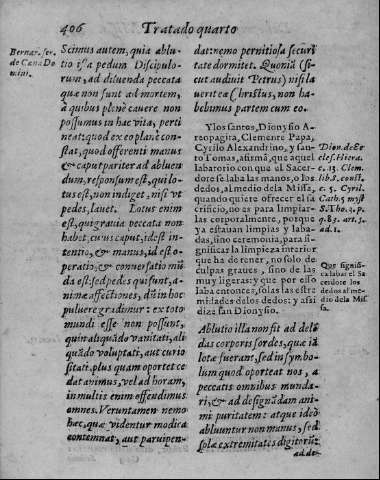 406 Tratado quarto
Bernar. ser.
de Cæna Do
mini.
Scimus autem, quia ablu-
tio ista pedum Discipulo-
rum, ad diluenda peccata
quæ non sunt ad mortem,
à quibus plenè cauere non
possumus in hac vita, perti
neat: quod ex eo planè con-
stat, quod offerenti manus
& caput pariter ad abluen
dum, responsum est, qui lo-
tus est, non indiget, nisi vt
pedes, lauet. Lotus enim
est, qui grauia peccata non
habet, cuius caput, idest in-
tentio, & manus, id est o-
peratio, & conuersatio mũ
da est: sed pedes qui sunt, a-
nimæ affectiones, dũ in hoc
puluere gradimur: ex toto
mundi esse non possunt,
quin aliquãdo vanitati, ali
quãdo voluptati, aut curio
sitati, plus quam oportet ce
dat animus, vel ad horam,
in multis enim offendimus
omnes. Veruntamen nemo
hæc, quæ videntur modica
contemnat, aut paruipen-
dat: nemo pernitiosa securi
tate dormitet. Quoniã (si-
cut audiuit Petrus) nisi la
uerit ea Christus, non ha-
bebimus partem cum eo.
Y los santos, Dionysio A-
reopagita, Clemente Papa,
Cyrilo Alexandrino, y san-
to Tomas, afirmã, que aquel
labatorio con que el Sacer-
dote se laba las manos, o los
dedos, al medio de la Missa,
quando quiere ofrecer el sa
crificio, no es para limpiar-
las corporalmente, porque
ya estauan limpias y laba-
das, sino ceremonia, para si-
gnificar la limpieza interior
que ha de tener, no solo de
culpas graues, sino de las
muy ligeras: y que por esso
laba entonces, solas las estre
midades de los dedos: y assi
dize san Dionysio.
Dion. de Ec
cles. Hiera.
c. 13. Clem.
lib. 8. const.
c. 5. Cyril.
Cath. 5 myst
S. Tho. 3. p.
q. 83. art. 5.
ad. 1.
Que signifi-
ca labar el Sa
cerdote los
dedos al me-
dio de la Mis
sa.
Ablutio illa non fit ad delẽ
das corporis sordes, quæ iã
lotæ fuerant, sed in symbo-
lum quod oporteat nos, a
peccatis omnibus munda-
ri, & ad designãdam ani-
mi puritatem: atque ideò
abluuntur non manus, sed
solæ extremitates digitorũ:
ad de-